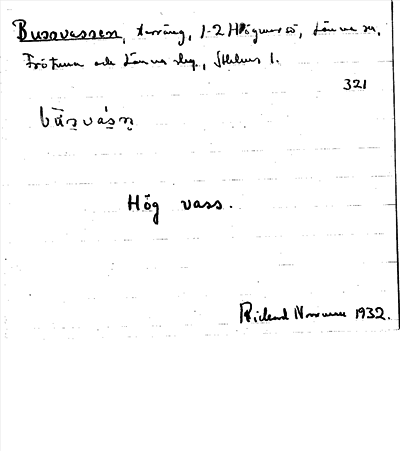 Bussvassen, terräng, 1-2 Högmarsö, Länna sn,
Frötuna och Länna skg., Sthlms l.
321
Hög vass.
Rickard Norman 1932.